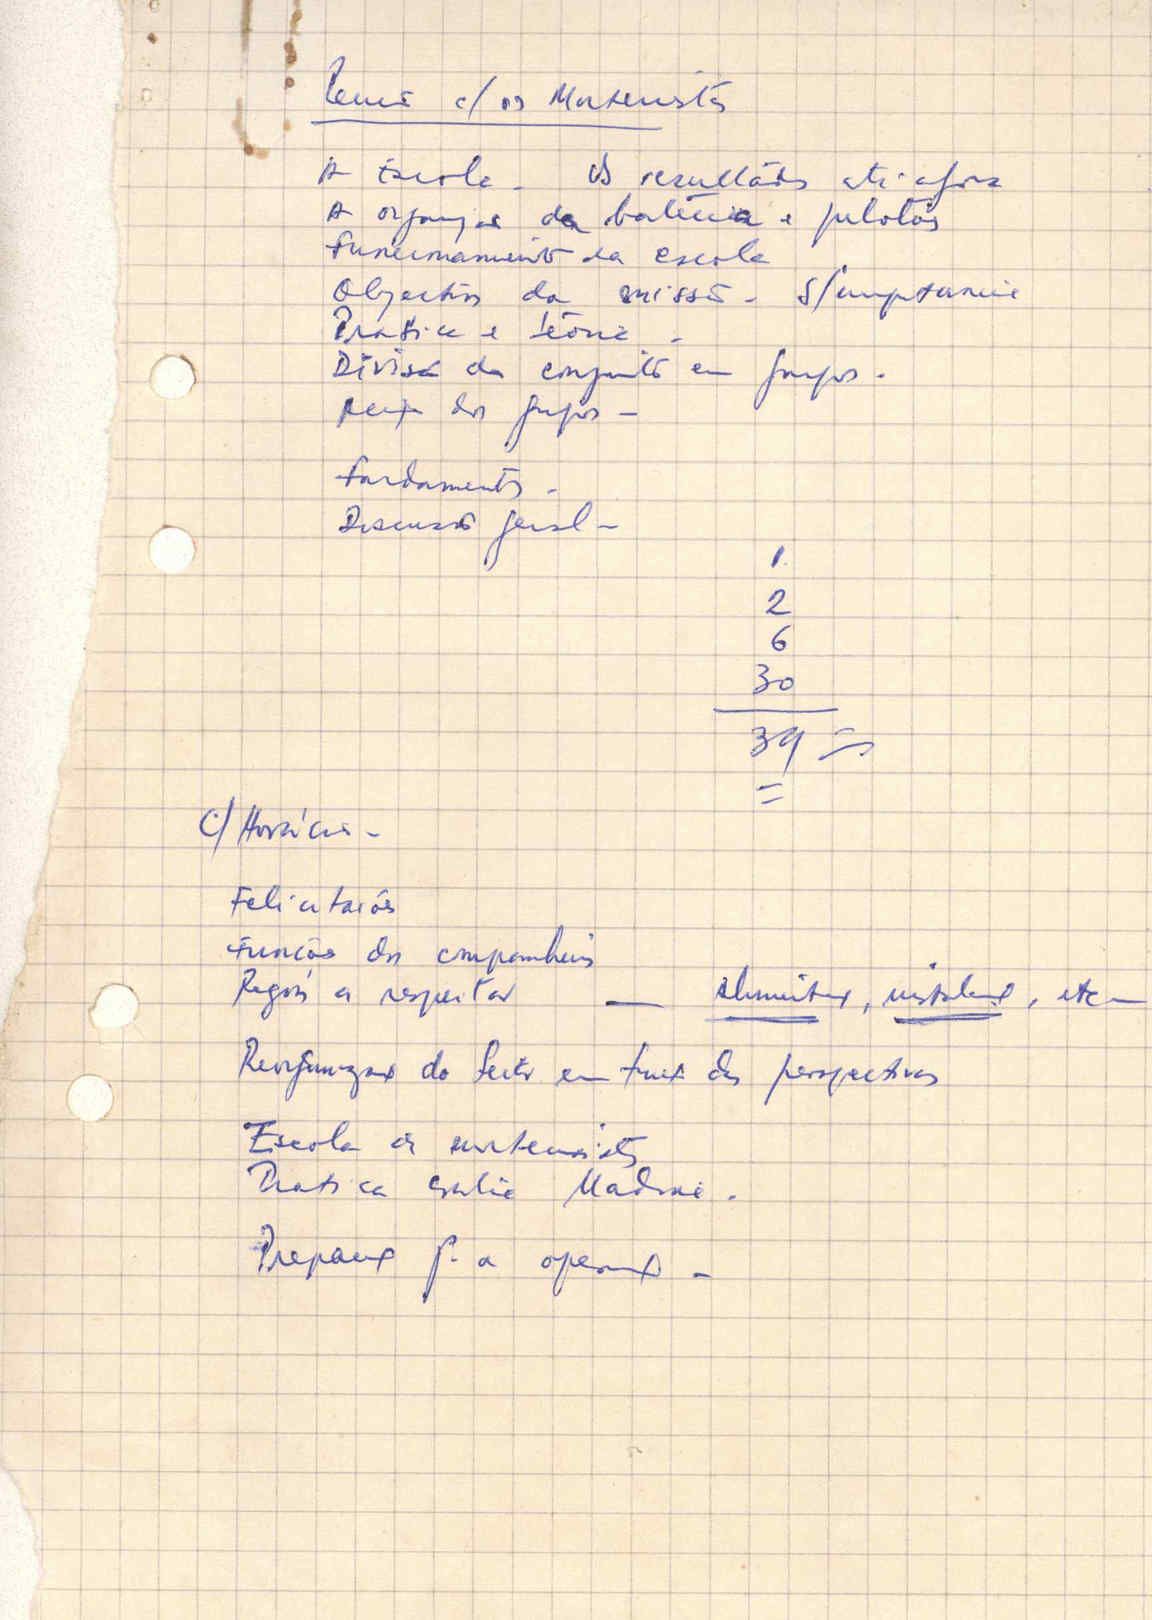 Reunião c/ os Morteiristas
A Escola - Os resultados até agora
A organização da bateria e pelotões
Funcionamento da escola
Objectivos da missão - S/importância
Pratica e teoria -
Divisão do conjunto em grupos -
dos grupos -
Fardamentos -
Discussão geral -
1
2
6
30
39
C/ Horácio -
Felicitações
Funções dos companheiros
Regras a respeitar — Alimentação, instalação, etc -
Reorganização do Sector em função das perspectivas
Escola de morteiristas
Pratica contra Madina -
Preparação p. a operação -